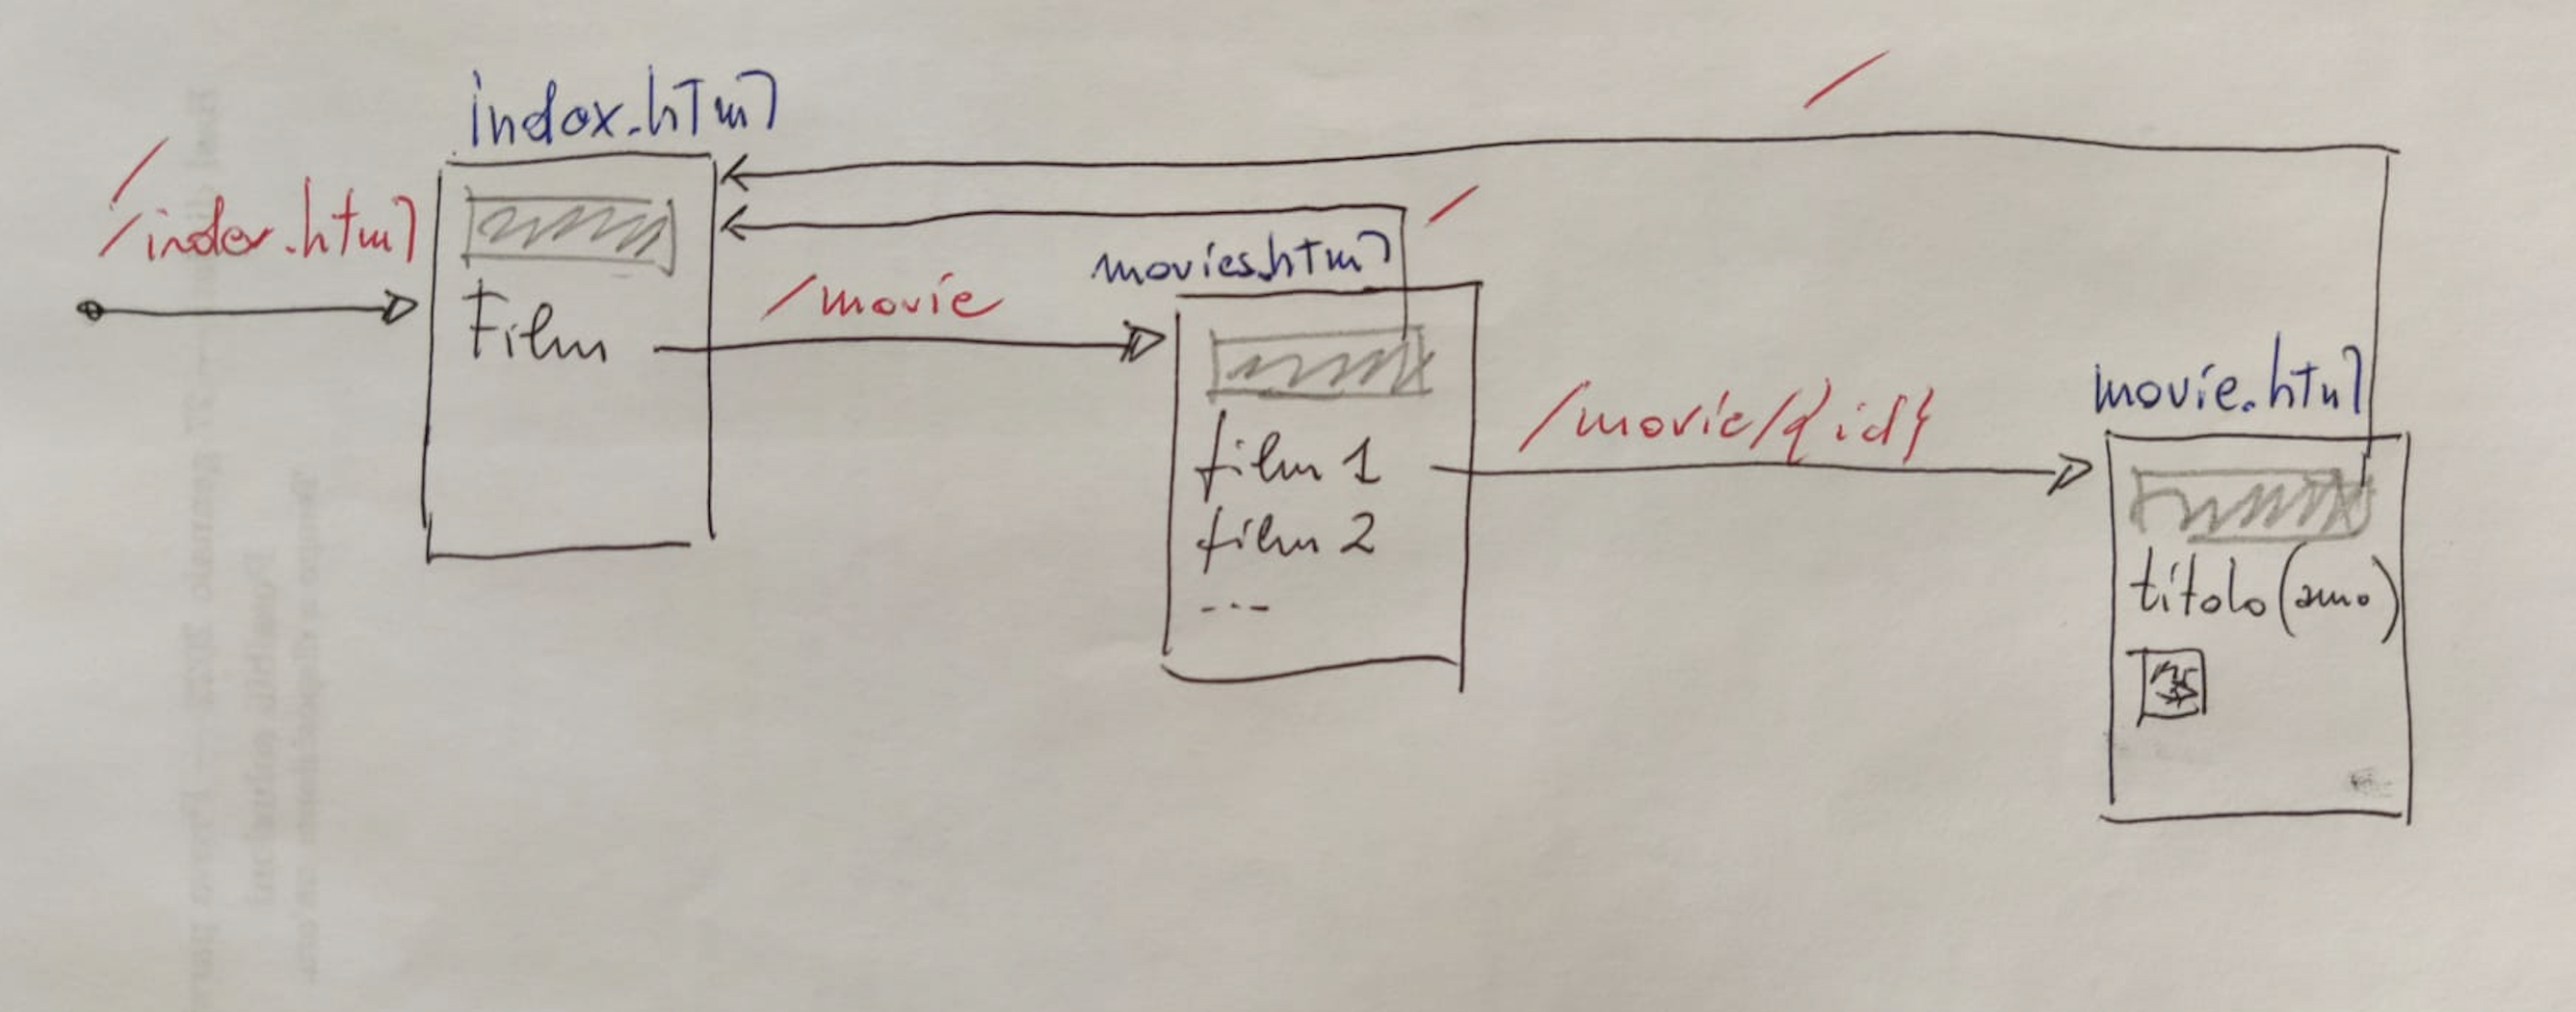 /
/index.html
index.html
Film
/movie
/
/
movies.html
film 1
film 2
---
/movie/{id}
movie.html
titolo (anno)